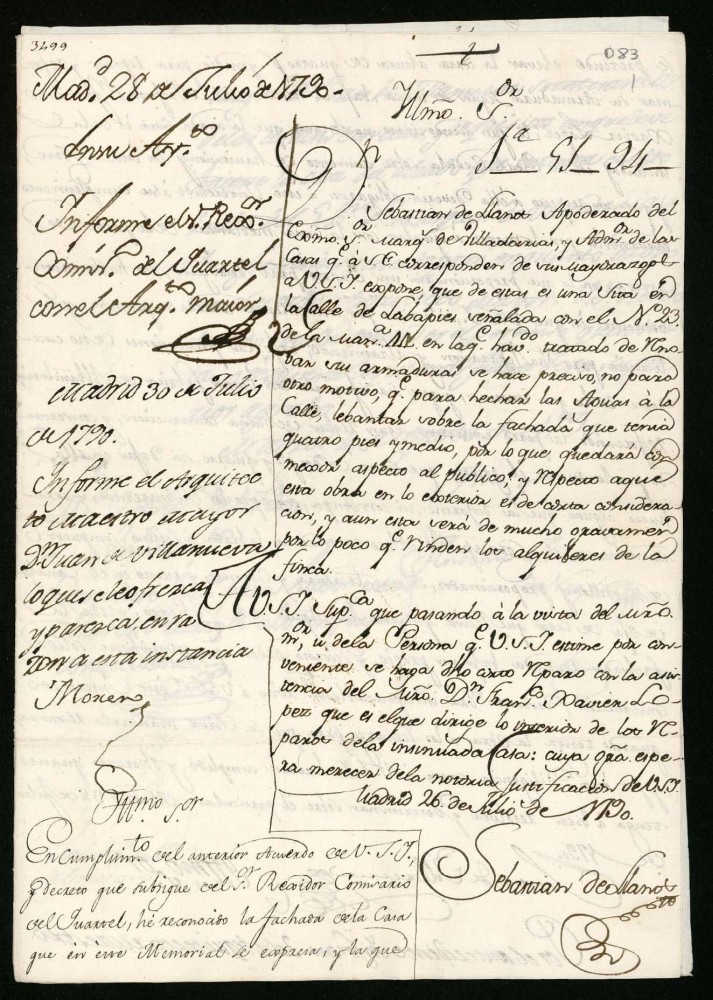 3299
083
1
Mad.d 28 de Julio de 1790.
Illmo. S.or
En su Ay.to
1ª 51 94
Informe el S. Rex.or
Comis.o del Quartel
con el Arq.to maior
Madrid 30 de Julio
de 1790.
Informe el Arquitec
to Maestro Mayor
Dn Juan de Villanueva
lo que se le ofrezca
y parezca en ra
zon a esta instancia
Moreno
Dn
Sebastian de Llano Apoderado del
Excmo. S.or Marq.s de Villadarias, y Adm.or de las
Casas q.e à S.E. corresponden de sus Mayorazgos
a V.S.I. expone, que de estas es una sita en
la Calle de Labapies señalada con el Nº. 23.
de la Manz.a en la q.e hav.do tratado de Rno-
bar sus armaduras se hace preciso, no para
otro motivo, q.e para hechar las Aguas à la
Calle, lebantar sobre la fachada que tenia
quatro pies y medio, por lo que quedará con
mexor aspecto al publico; y Respecto a que
esta obra en lo exterior es de corta considera-
cion, y aun esta será de mucho gravamen
por lo poco q.e Rinden los alquileres de la
finca.
A V.S.I. Sup.ca que pasando à la vista del Mro.
m.or, ù de la Persona q.e V.S.I. estime por con-
veniente se haga dho corto Rparo con la asis-
tencia del Mro. Dn Fran.co Xavier Lo-
pez que es el que dirige lo interior de los R-
paros de la insinuada Casa: cuya gra. espe-
ra merecer de la notoria Justificacion de V.S.I.
Madrid 26 de Julio de 1790.
Sebastian de Llano
Illmo S.or
En cumplim.to del anterior Acuerdo de V.S.I.,
y decreto que subsigue del S.r Regidor Comisario
del Quartel, hé reconocido la fachada de la Casa
que en este Memorial se expresa, y la que